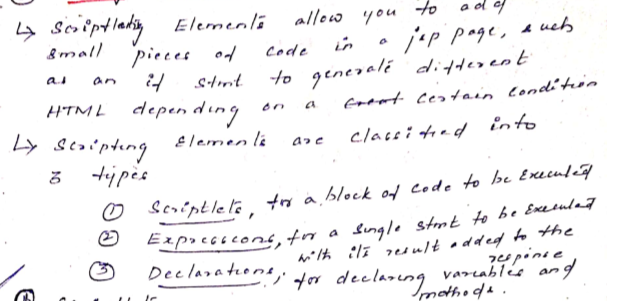 ↳ Scriptleting Elements allow you to add
small pieces of code in a jsp page, such
as an if stmt to generate different
HTML depending on a certain condition
↳ Scripting Elements are classified into
3 types
① Scriptlets, for a block of code to be Executed
② Expressions, for a Single stmt to be Executed
with its result added to the
response
③ Declarations, for declaring variables and
methods.